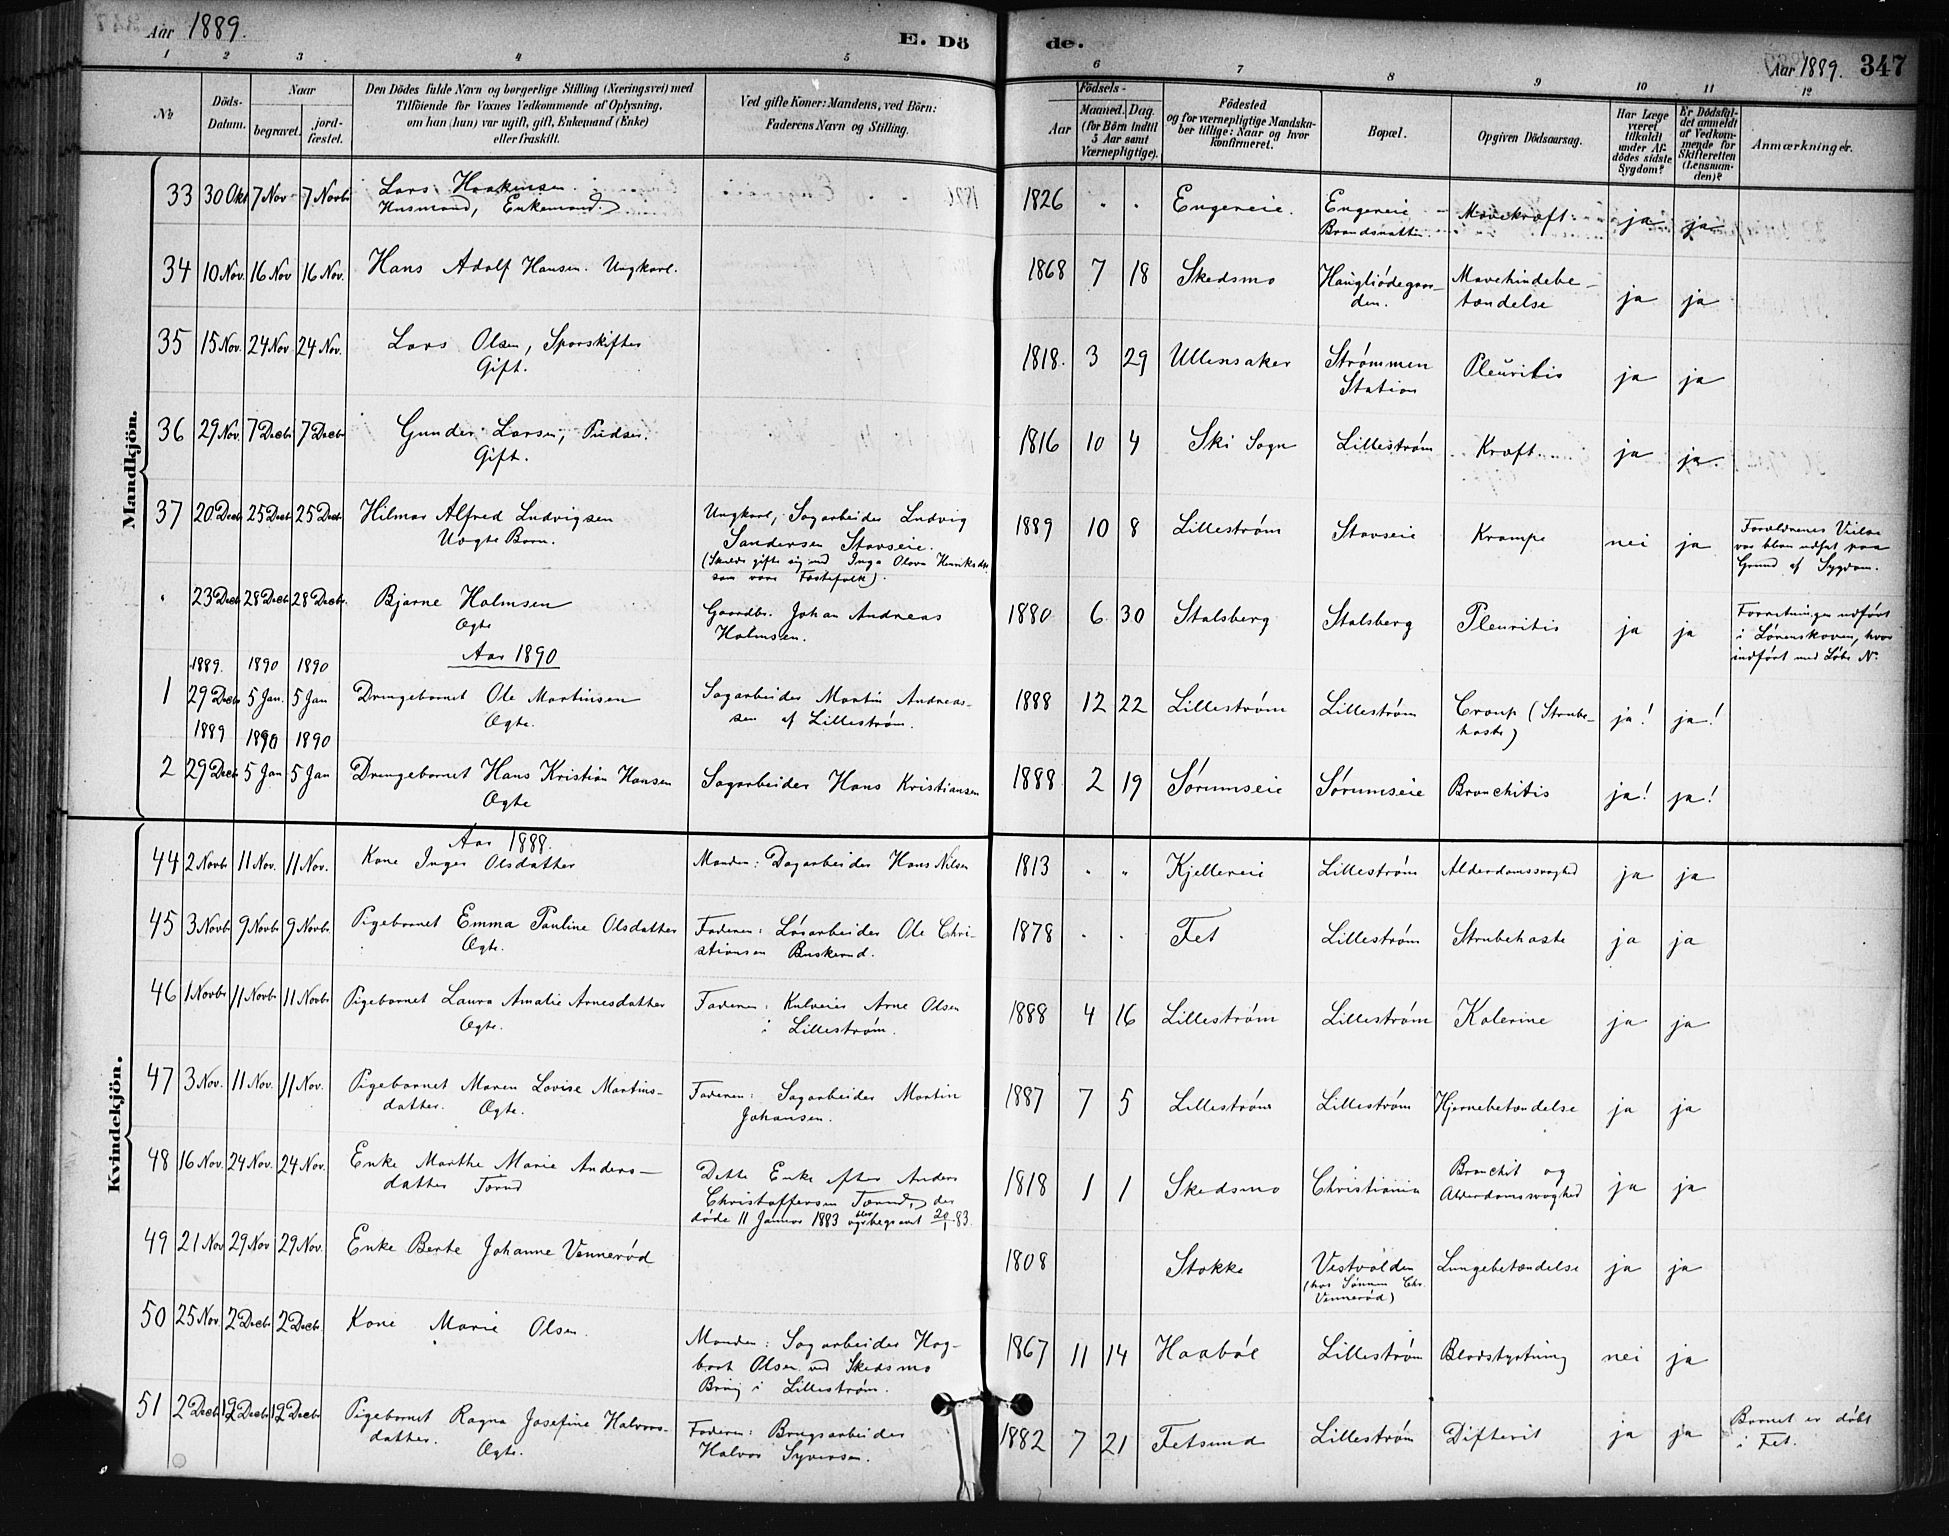 Aar 1889.
E. Dö
de.
Aar 1889. 347
1 2 3 4 5 6 7 8 9 10 11 12
No
Döds-
Datum.
Naar
begravet.
jord-
fæstet.
Den Dödes fulde Navn og borgerlige Stilling (Næringsvei) med
Tilföiende for Voxnes Vedkommende af Oplysning,
om han (hun) var ugift, gift, Enkemand (Enke)
eller fraskilt.
Ved gifte Koner: Mandens, ved Börn:
Faderens Navn og Stilling.
Födsels-
Aar
Maaned.
Dag.
(for Börn indtil
5 Aar samt
Værnepligtige).
Födested
og for værnepligtige Mandska-
ber tillige: Naar og hvor
konfirmeret.
Bopæl.
Opgiven Dödsaarsag.
Har Læge
været
tilkaldt
under Af-
dödes sidste
Sygdom?
Er Dödsfal-
det anmeldt
af Vedkom-
mende for
Skifteretten
(Lensman-
den)?
Anmærkninger.
Mandkjön.
33 30 Okt 7 Nov 7 Novb Lars Haakensen
Husmand, Enkemand.
1826 Engereie. Engereie Mavekræft ja ja
34 10 Nov. 16 Nov 16 Nov. Hans Adolf Hansen. Ungkarl.
1868 7 18 Skedsmo Haugliødegaar-
den. Mavehindebe-
tændelse ja ja
35 15 Nov. 24 Nov 24 Nov. Lars Olsen, Sporskifter
Gift.
1818. 3 29 Ullensaker Strømmen
Station Pleuritis ja ja
36 29 Nov. 7 Decbr 7 Decbr Gunder Larsen, Pudser.
Gift.
1816 10 4 Ski Sogn Lillestrøm Kræft ja ja
37 20 Decb 25 Decb 25 Decb Hilmar Alfred Ludvigsen
Uægte Barn.
Ungkarl, Sagarbeider Ludvig
Sandersen Stavseie.
(Skulde gifte sig med Inga Olava Henriksdtr.
som vare Fæstefolk).
1889 10 8 Lillestrøm Stavseie Krampe nei ja
Forældrenes Vielse
var bleven udsat paa
Grund af Sygdom.
23 Decb 28 Decb 28 Decbr. Bjarne Holmsen
Ægte
Gaardbr. Johan Andreas
Holmsen.
1880 6 30 Stalsberg Stalsberg Pleuritis ja ja
Forretningen udført
i Lørenskoven, hvor
indført med Løbe No.
Aar 1890
1889. 1890 1890
1 29 Decb 5 Jan. 5 Jan Drengebarnet Ole Martinsen
Ægte.
Sagarbeider Martin Andreas-
sen af Lillestrøm.
1888 12 22 Lillestrøm Lillestrøm Croup (Strube-
hoste) ja! ja!
1889 1890 1890
2 29 Decb 5 Jan 5 Jan Drengebarnet Hans Kristian Hansen
Ægte
Sagarbeider Hans Kristiansen
1888 2 19 Sørumseie Sørumseie Bronchitis ja! ja!
Kvindekjön.
Aar 1888.
44 2 Novb 11 Nov. 11 Nov. Kone Inger Olsdatter
Manden: Dagarbeider Hans Nilsen
1813 Kjellereie Lillestrøm Alderdomssvaghed ja ja
45 3 Novb 9 Novb 9 Novb Pigebarnet Emma Pauline Olsdatter
Ægte.
Faderen: Løsarbeider Ole Chri-
stiansen Buskerud.
1878 Fet Lillestrøm Strubehoste ja ja
46 1 Novb 11 Novb 11 Novb Pigebarnet Laura Amalie Arnesdatter
Ægte.
Faderen: Arne Olsen
i Lillestrøm.
1888 4 16 Lillestrøm Lillestrøm Kolerine ja ja
47 3 Nov. 11 Nov. 11 Nov. Pigebarnet Maren Lovise Martins-
datter. Ægte.
Faderen: Sagarbeider Martin
Johansen.
1887 7 5 Lillestrøm Lillestrøm Hjernebetændelse ja ja
48 16 Nov. 24 Nov. 24 Nov. Enke Marthe Marie Anders-
datter Torud
Dette Enke efter Anders
Christoffersen Torud, der
døde 11 Januar 1883 og blev begravet 20/1 83.
1818 1 1 Skedsmo Christiania Bronchit og
Alderdomssvaghed ja ja
49 21 Nov 29 Nov 29 Nov. Enke Berte Johanne Vennerød
1808 Stokke Vestvolden
(hos Sønnen Chr.
Vennerød) Lungebetændelse ja ja
50 25 Nov. 2 Decb 2 Decb Kone Marie Olsen.
Manden: Sagarbeider Hag-
bart Olsen ved Skedsmo
Brug i Lillestrøm.
1867 11 14 Haabøl Lillestrøm Blodstyrtning nei ja
51 2 Decb 12 Decb 12 Decb Pigebarnet Ragna Josefine Halvors-
datter. Ægte.
Faderen: Brugsarbeider
Halvor Syversen.
1882 7 21 Fetsund Lillestrøm Difterit ja ja
Barnet er døbt
i Fet.